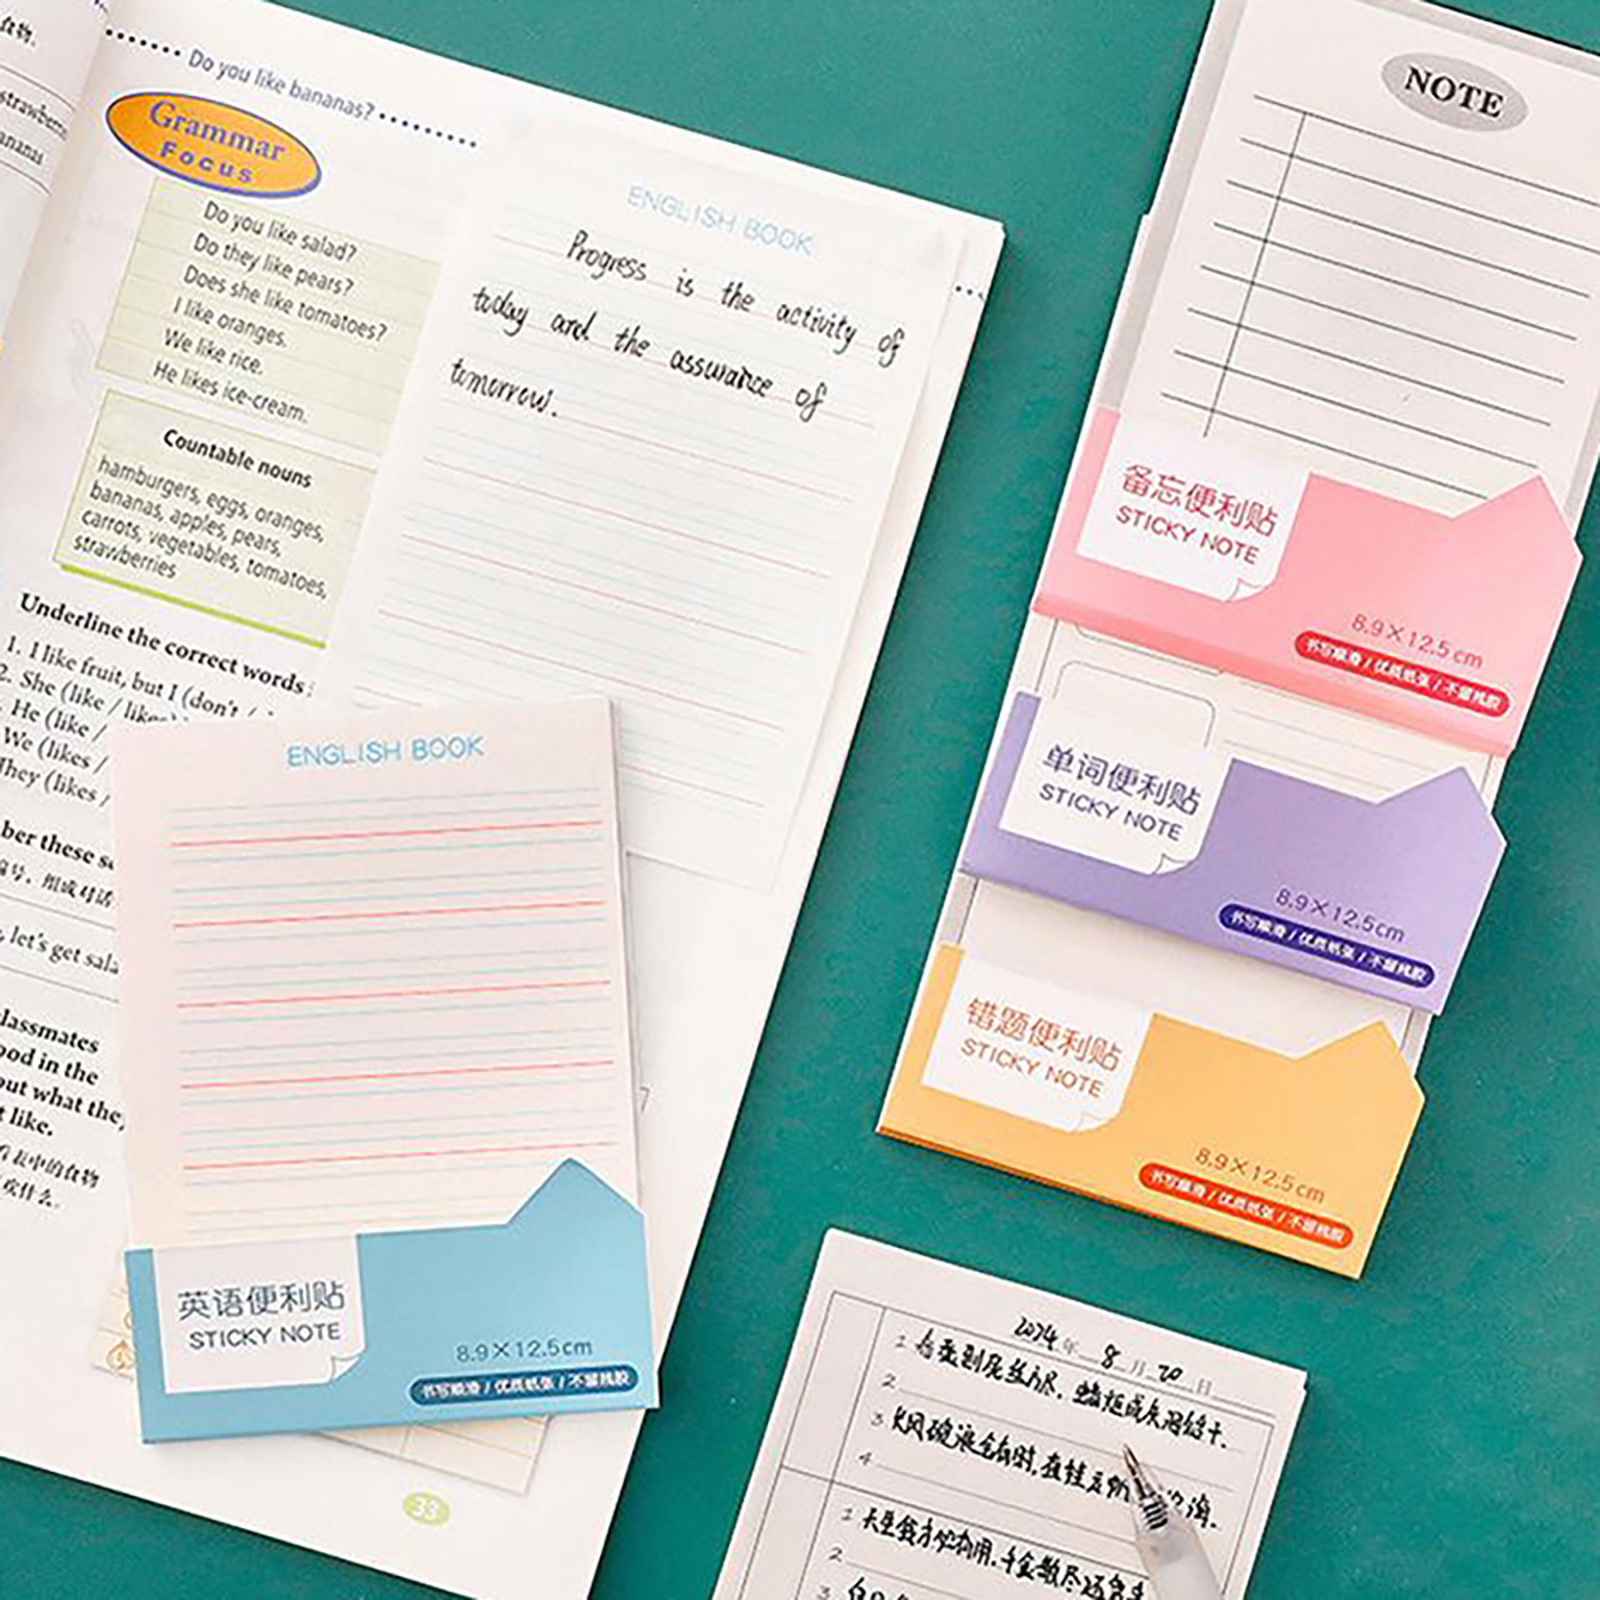 食物.
strawberries
bananas
Do you like bananas?
Grammar
Focus
Do you like salad?
Do they like pears?
Does she like tomatoes?
I like oranges.
We like rice.
He likes ice-cream.
Countable nouns
hamburgers, eggs, oranges,
bananas, apples, pears,
carrots, vegetables, tomatoes,
strawberries
Underline the correct words
1. I like fruit, but I (don't /
2. She (like / likes)
He (like /
We (likes /
They (likes /
ber these se
编号, 组成对话
, let's get sala
lassmates
ood in the
out what they
t like.
表中的食物
欢什么.
33
ENGLISH BOOK
Progress is the activity of
today and the assurance of
tomorrow.
ENGLISH BOOK
英语便利贴
STICKY NOTE
8.9×12.5cm
书写顺滑 / 优质纸张 / 不留残胶
NOTE
备忘便利贴
STICKY NOTE
8.9×12.5cm
书写顺滑 / 优质纸张 / 不留残胶
单词便利贴
STICKY NOTE
8.9×12.5cm
书写顺滑 / 优质纸张 / 不留残胶
错题便利贴
STICKY NOTE
8.9×12.5cm
书写顺滑 / 优质纸张 / 不留残胶
2024年 8月 20日
1
2
3 长风破浪会有时,直挂云帆济沧海.
4
1 天生我才必有用,千金散尽还复来
2
3